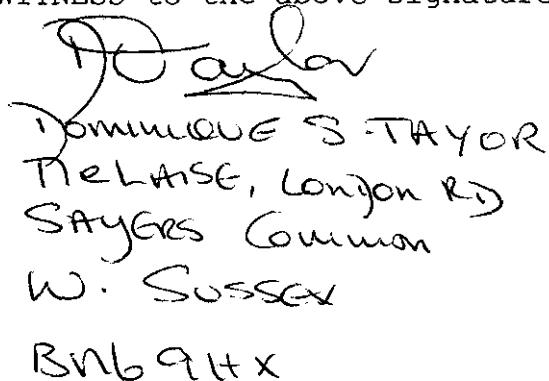 WITNESS to the above signature
DTaylor
Dominique S TAYOR
MeLAISE, London RD
SAYERS Common
W. SUSSEX
BN6 9HX